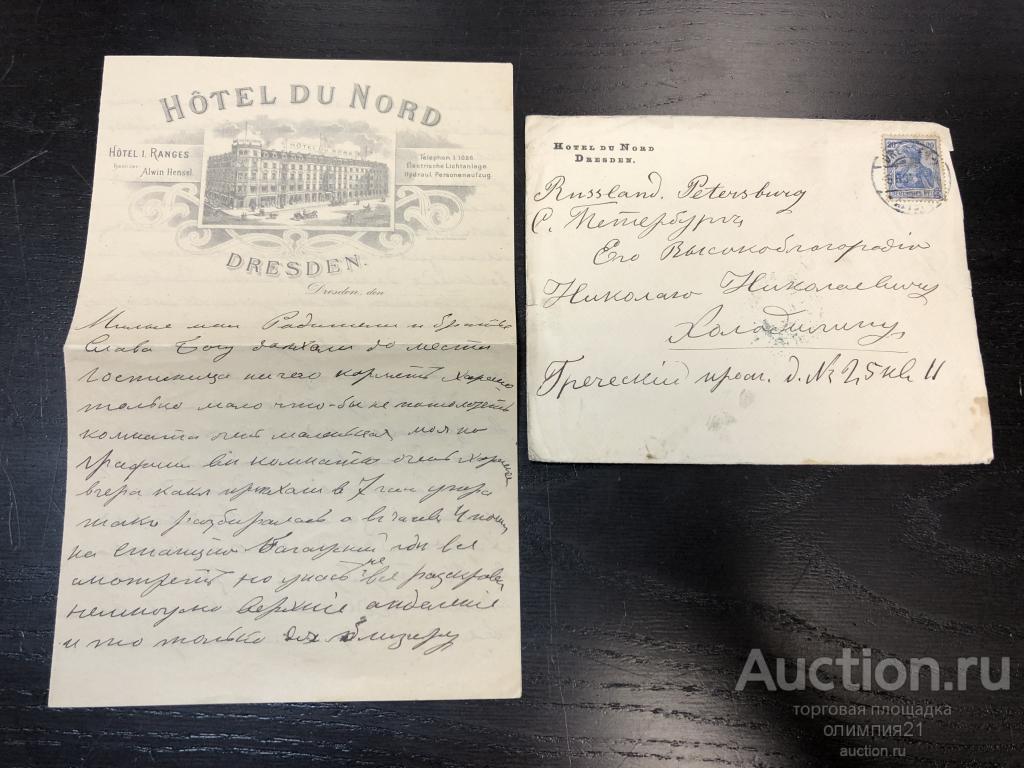 HÔTEL DU NORD
HÔTEL I. RANGES
Besitzer
Alwin Hensel.
HÔTEL DU NORD
Telephon I. 1086.
Electrische Lichtanlage.
Hydraul. Personenaufzug.
DRESDEN.
Dresden, den
Милые мои Родители и братья
Слава Богу доехали до места
Гостиница ничего кормят хорошо
только мало что-бы не потолстеть
комната очень маленькая но
Графини комната очень
вчера как приехали в 7 час утра
только разбиралась а в 4
на станцию Багажный где все
смотрят но у нас не все
немножко верхние
и то только для близиру
HOTEL DU NORD
DRESDEN.
20 20
Russland. Petersburg
С. Петербургъ
Его Высокоблагородію
Николаю Николаевичу
Холодилину
Греческій просп. д. № 25 кв 11
Auction.ru
торговая площадка
олимпия21
auction.ru